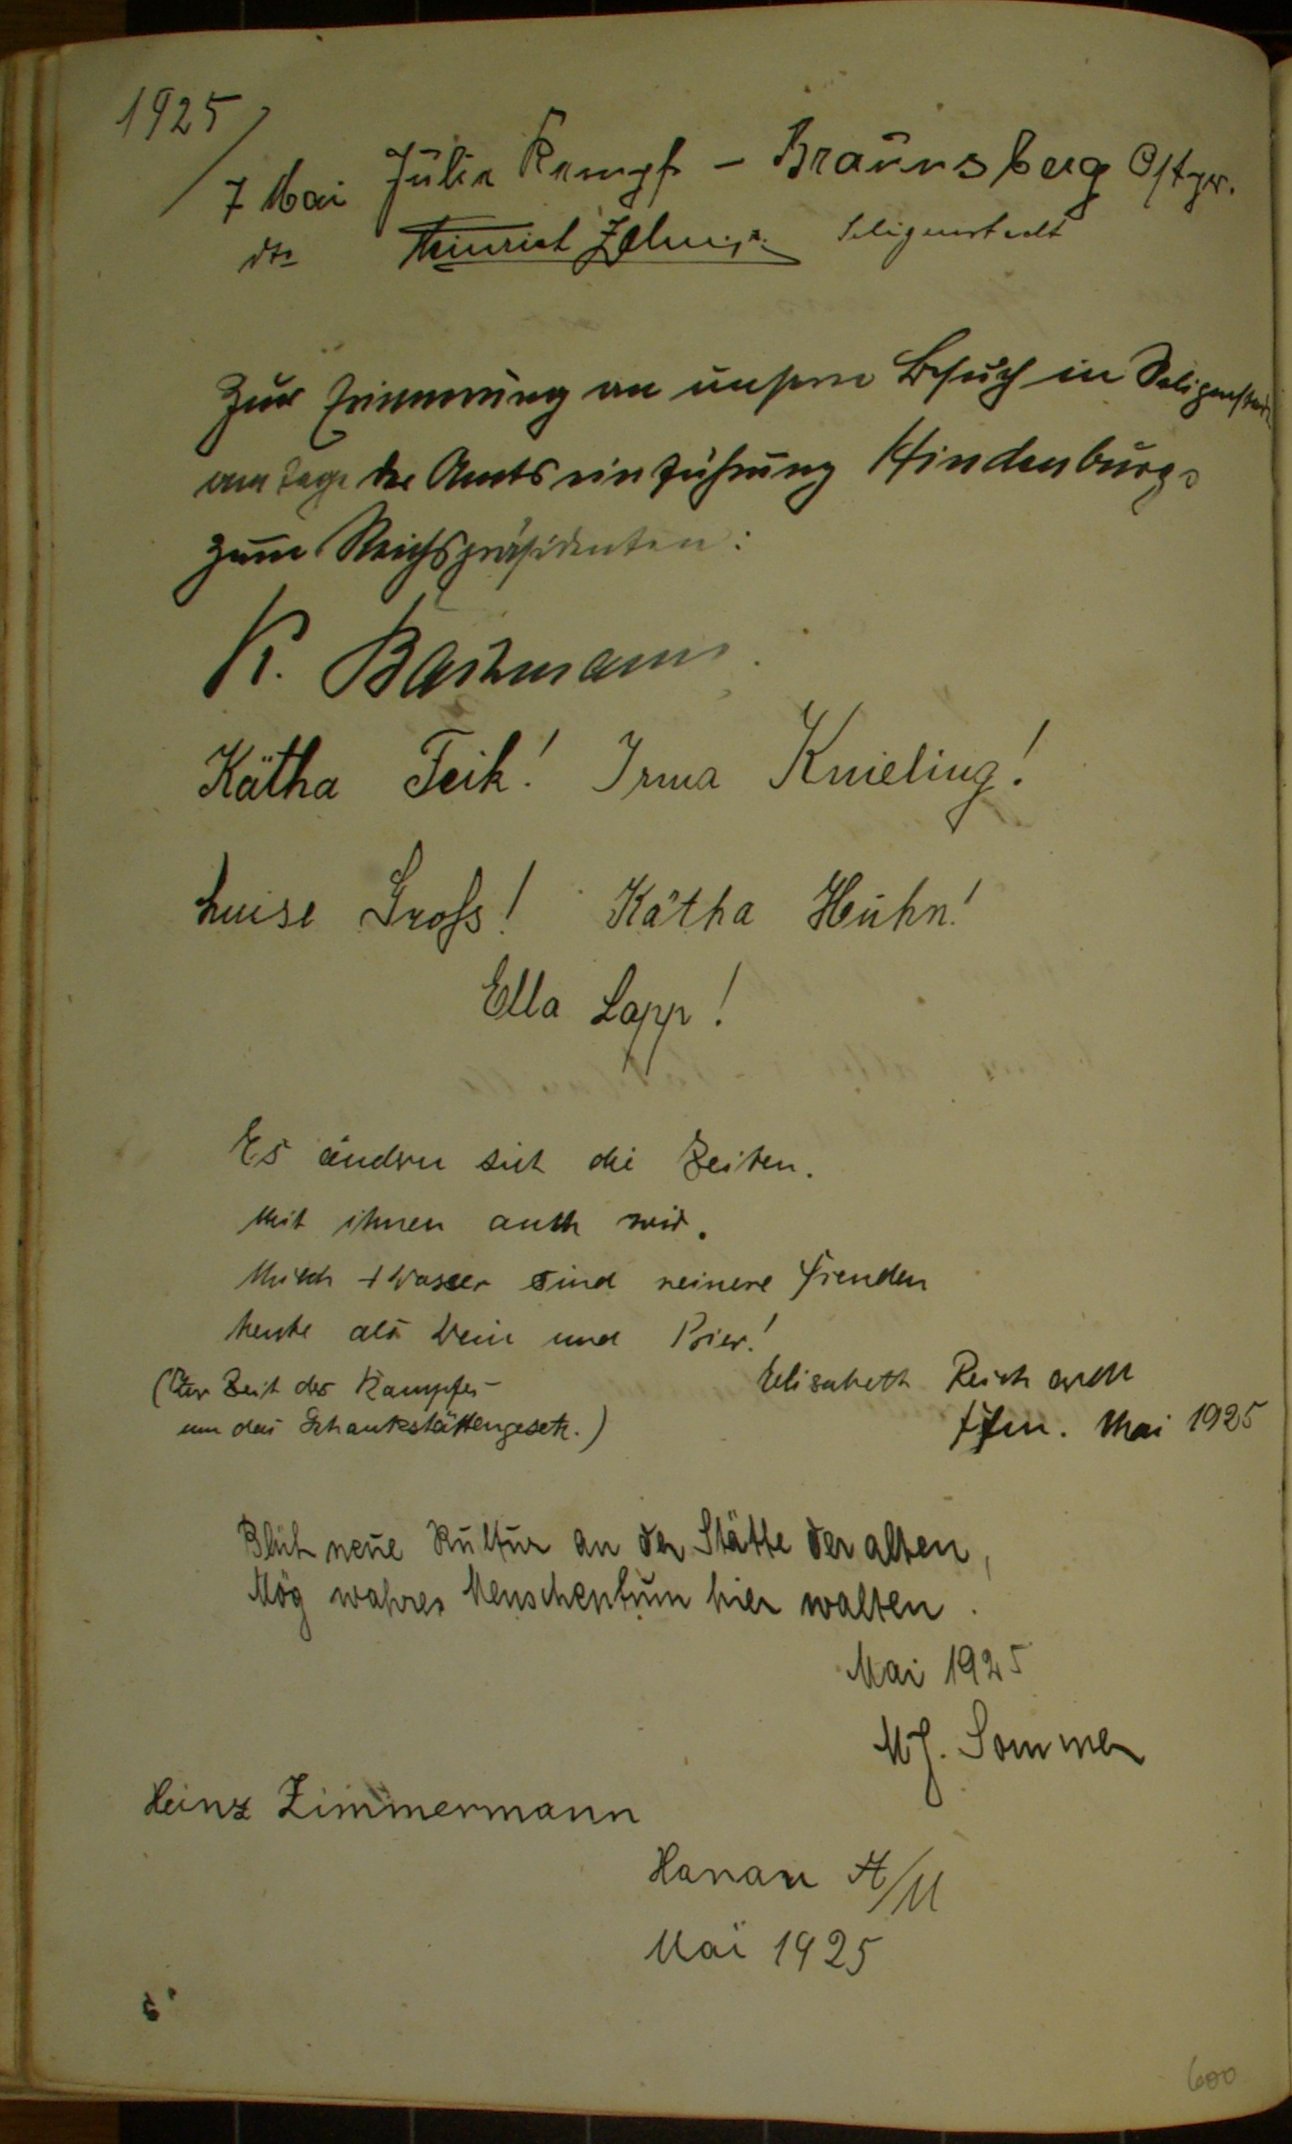 1925
7 Mai Julia Kempf - Braunsberg Ostpr.
dto Heinrich Seligenstadt
Zur Erinnerung an unseren Besuch in Seligenstadt
am Tage der Amtseinführung Hindenburgs
zum Reichspräsidenten:
K. Bachmann.
Kätha Feik! Irma Knieling!
Luise Groß! Kätha Huhn!
Ella Lapp!
Es ändern sich die Zeiten.
Mit ihnen auch wir.
Milch + Wasser sind reinere Freuden
heute als Wein und Bier!
(Zur Zeit des Kampfes
um das Schankstättengesetz.)
Elisabeth
Ffm. Mai 1925
Blüh neue Kultur an der Stätte der alten,
Mög wahres Menschentum hier walten.
Mai 1925
Sommer
Heinz Zimmermann
Hanau A/M
Mai 1925
600